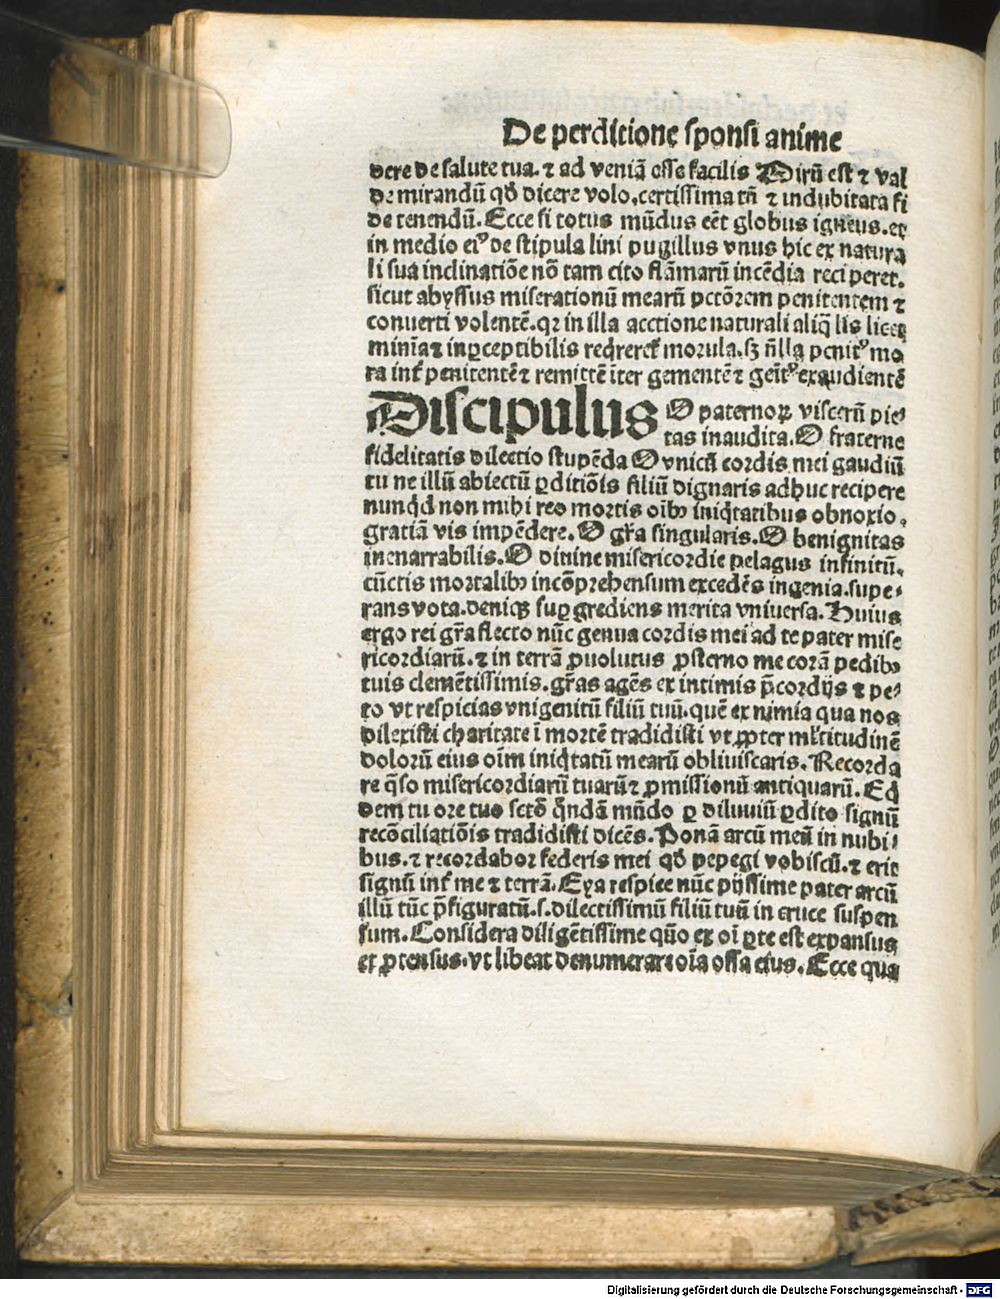 De perditione sponsi anime
dere de salute tua. ⁊ ad veniã esse facilis Dirũ est ⁊ val
de mirandũ qđ dicere volo. certissima tñ ⁊ indubitata fi
de tenendũ. Ecce si totus mũdus eẽt globus igneus. et
in medio eiꝰ de stipula lini pugillus vnus hic ex natura
li sua inclinatiõe nõ tam cito flãmarũ incẽdia reciperet.
sicut abyssus miserationũ mearũ pctõrem penitentem ⁊
conuerti volentẽ. qꝛ in illa acctione naturali aliq̃ lis licet
minia⁊ inꝑceptibilis reqrereť morula. sꝫ ñlla penitꝰ mo
ra inť penitentẽ ⁊ remittẽ iter gementẽ ⁊ geitꝰ exaudientẽ
Discipulus O paternoꝝ viscerũ pie⸗
tas inaudita. O fraterne
fidelitatis dilectio stupẽda O vnicũ cordis mei gaudiũ
tu ne illũ abiectũ ꝑditiõis filiũ dignaris adhuc recipere
nunqd non mihi reo mortis oĩbꝰ iniqtatibus obnoxio.
gratiã vis impẽdere. O gřa singularis. O benignitas
inenarrabilis. O diuine misericordie pelagus infinitũ.
cũctis mortalibꝰ incõprehensum excedẽs ingenia. supe⸗
rans vota. deniqꝫ suꝑgrediens merita vniuersa. Huius
ergo rei gřa flecto nũc genua cordis mei ad te pater mise
ricordiarũ. ⁊ in terrã ꝓuolutus ꝓsterno me corã pedibꝰ
tuis clemẽtissimis. gřas agẽs ex intimis p̃cordijs ⁊ pe⸗
to vt respicias vnigenitũ filiũ tuũ. quẽ ex nimia qua nos
dilexisti charitate ĩ mortẽ tradidisti vt ꝓpter mľtitudinẽ
dolorũ eius oĩm iniqtatũ mearũ obliuiscaris. Recorda
re q̃so misericordiarũ tuarũ ⁊ ꝓmissionũ antiquarũ. Eq̃
dem tu ore tuo sctõ q̃ndã mũdo ꝑ diluuiũ ꝑdito signũ
recõciliatiõis tradidisti dicẽs. Ponã arcũ meũ in nubi⸗
bus. ⁊ recordabor federis mei qđ pepegi vobiscũ. ⁊ erit
signũ inť me ⁊ terrã. Eya respice nũc pijssime pater arcũ
illũ tũc p̃figuratũ. s. dilectissimũ filiũ tuũ in cruce suspen
sum. Considera diligẽtissime quõ ex oĩ ꝑte est expansus
et ꝓtensus. vt libeat denumerare oĩa ossa eius. Ecce qua
Digitalisierung gefördert durch die Deutsche Forschungsgemeinschaft - DFG